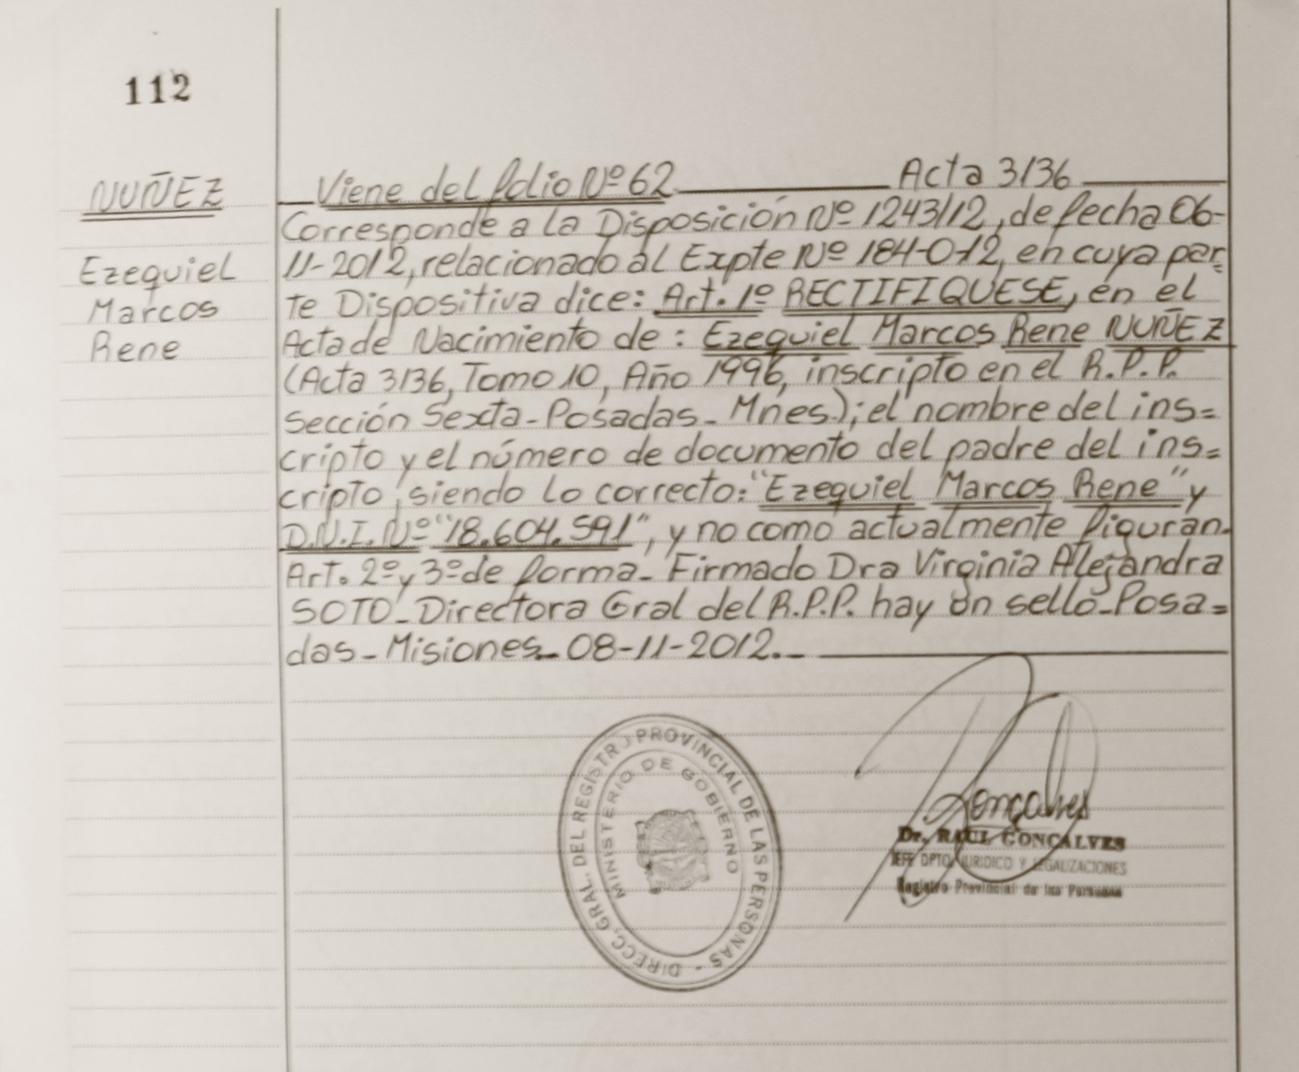 112
NUÑEZ
Ezequiel
Marcos
Rene
Viene del folio Nº 62 Acta 3136
Corresponde a la Disposición Nº 1243/12, de fecha 06-
11-2012, relacionado al Expte Nº 184-0-12, en cuya par=
te Dispositiva dice: Art. 1º RECTIFIQUESE, en el
Acta de Nacimiento de: Ezequiel Marcos Rene NUÑEZ
(Acta 3136, Tomo 10, Año 1996, inscripto en el R.P.P.
Sección Sexta-Posadas-Mnes.); el nombre del ins=
cripto y el número de documento del padre del ins=
cripto, siendo lo correcto: "Ezequiel Marcos Rene" y
D.N.I. Nº "18.604.591", y no como actualmente figuran.
Art. 2º y 3º de forma_ Firmado Dra Virginia Alejandra
SOTO_Directora Gral del R.P.P. hay un sello_Posa=
das_Misiones_08-11-2012._
DIRECC. GRAL. DEL REGISTRO PROVINCIAL DE LAS PERSONAS -
MINISTERIO DE GOBIERNO
Gonçalves
Dr. RAUL GONCALVES
JEFE DPTO. JURIDICO Y LEGALIZACIONES
Registro Provincial de las Personas